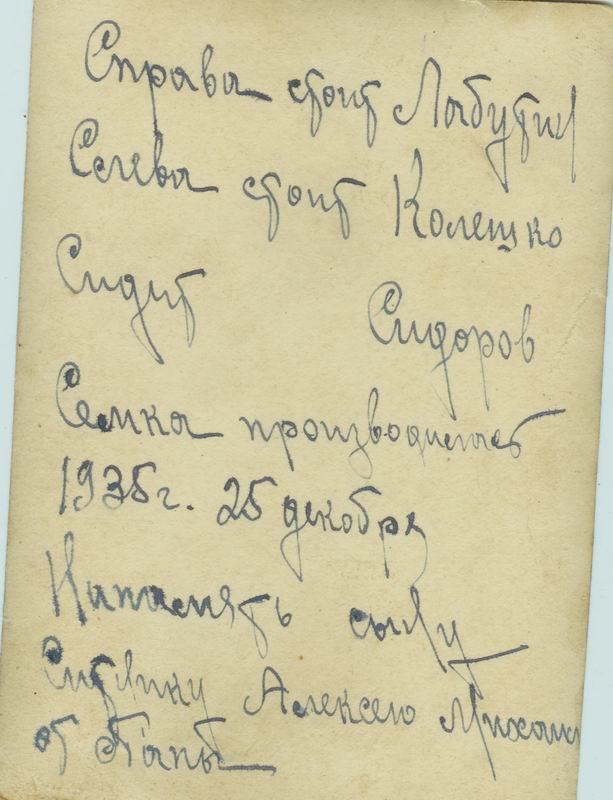 Справа стоит Лабутин
Слева стоит Колешко
Сидит Сидоров
Семка производилась
1935г. 25 декобря
Напамять сыну
Алексею
от Папы